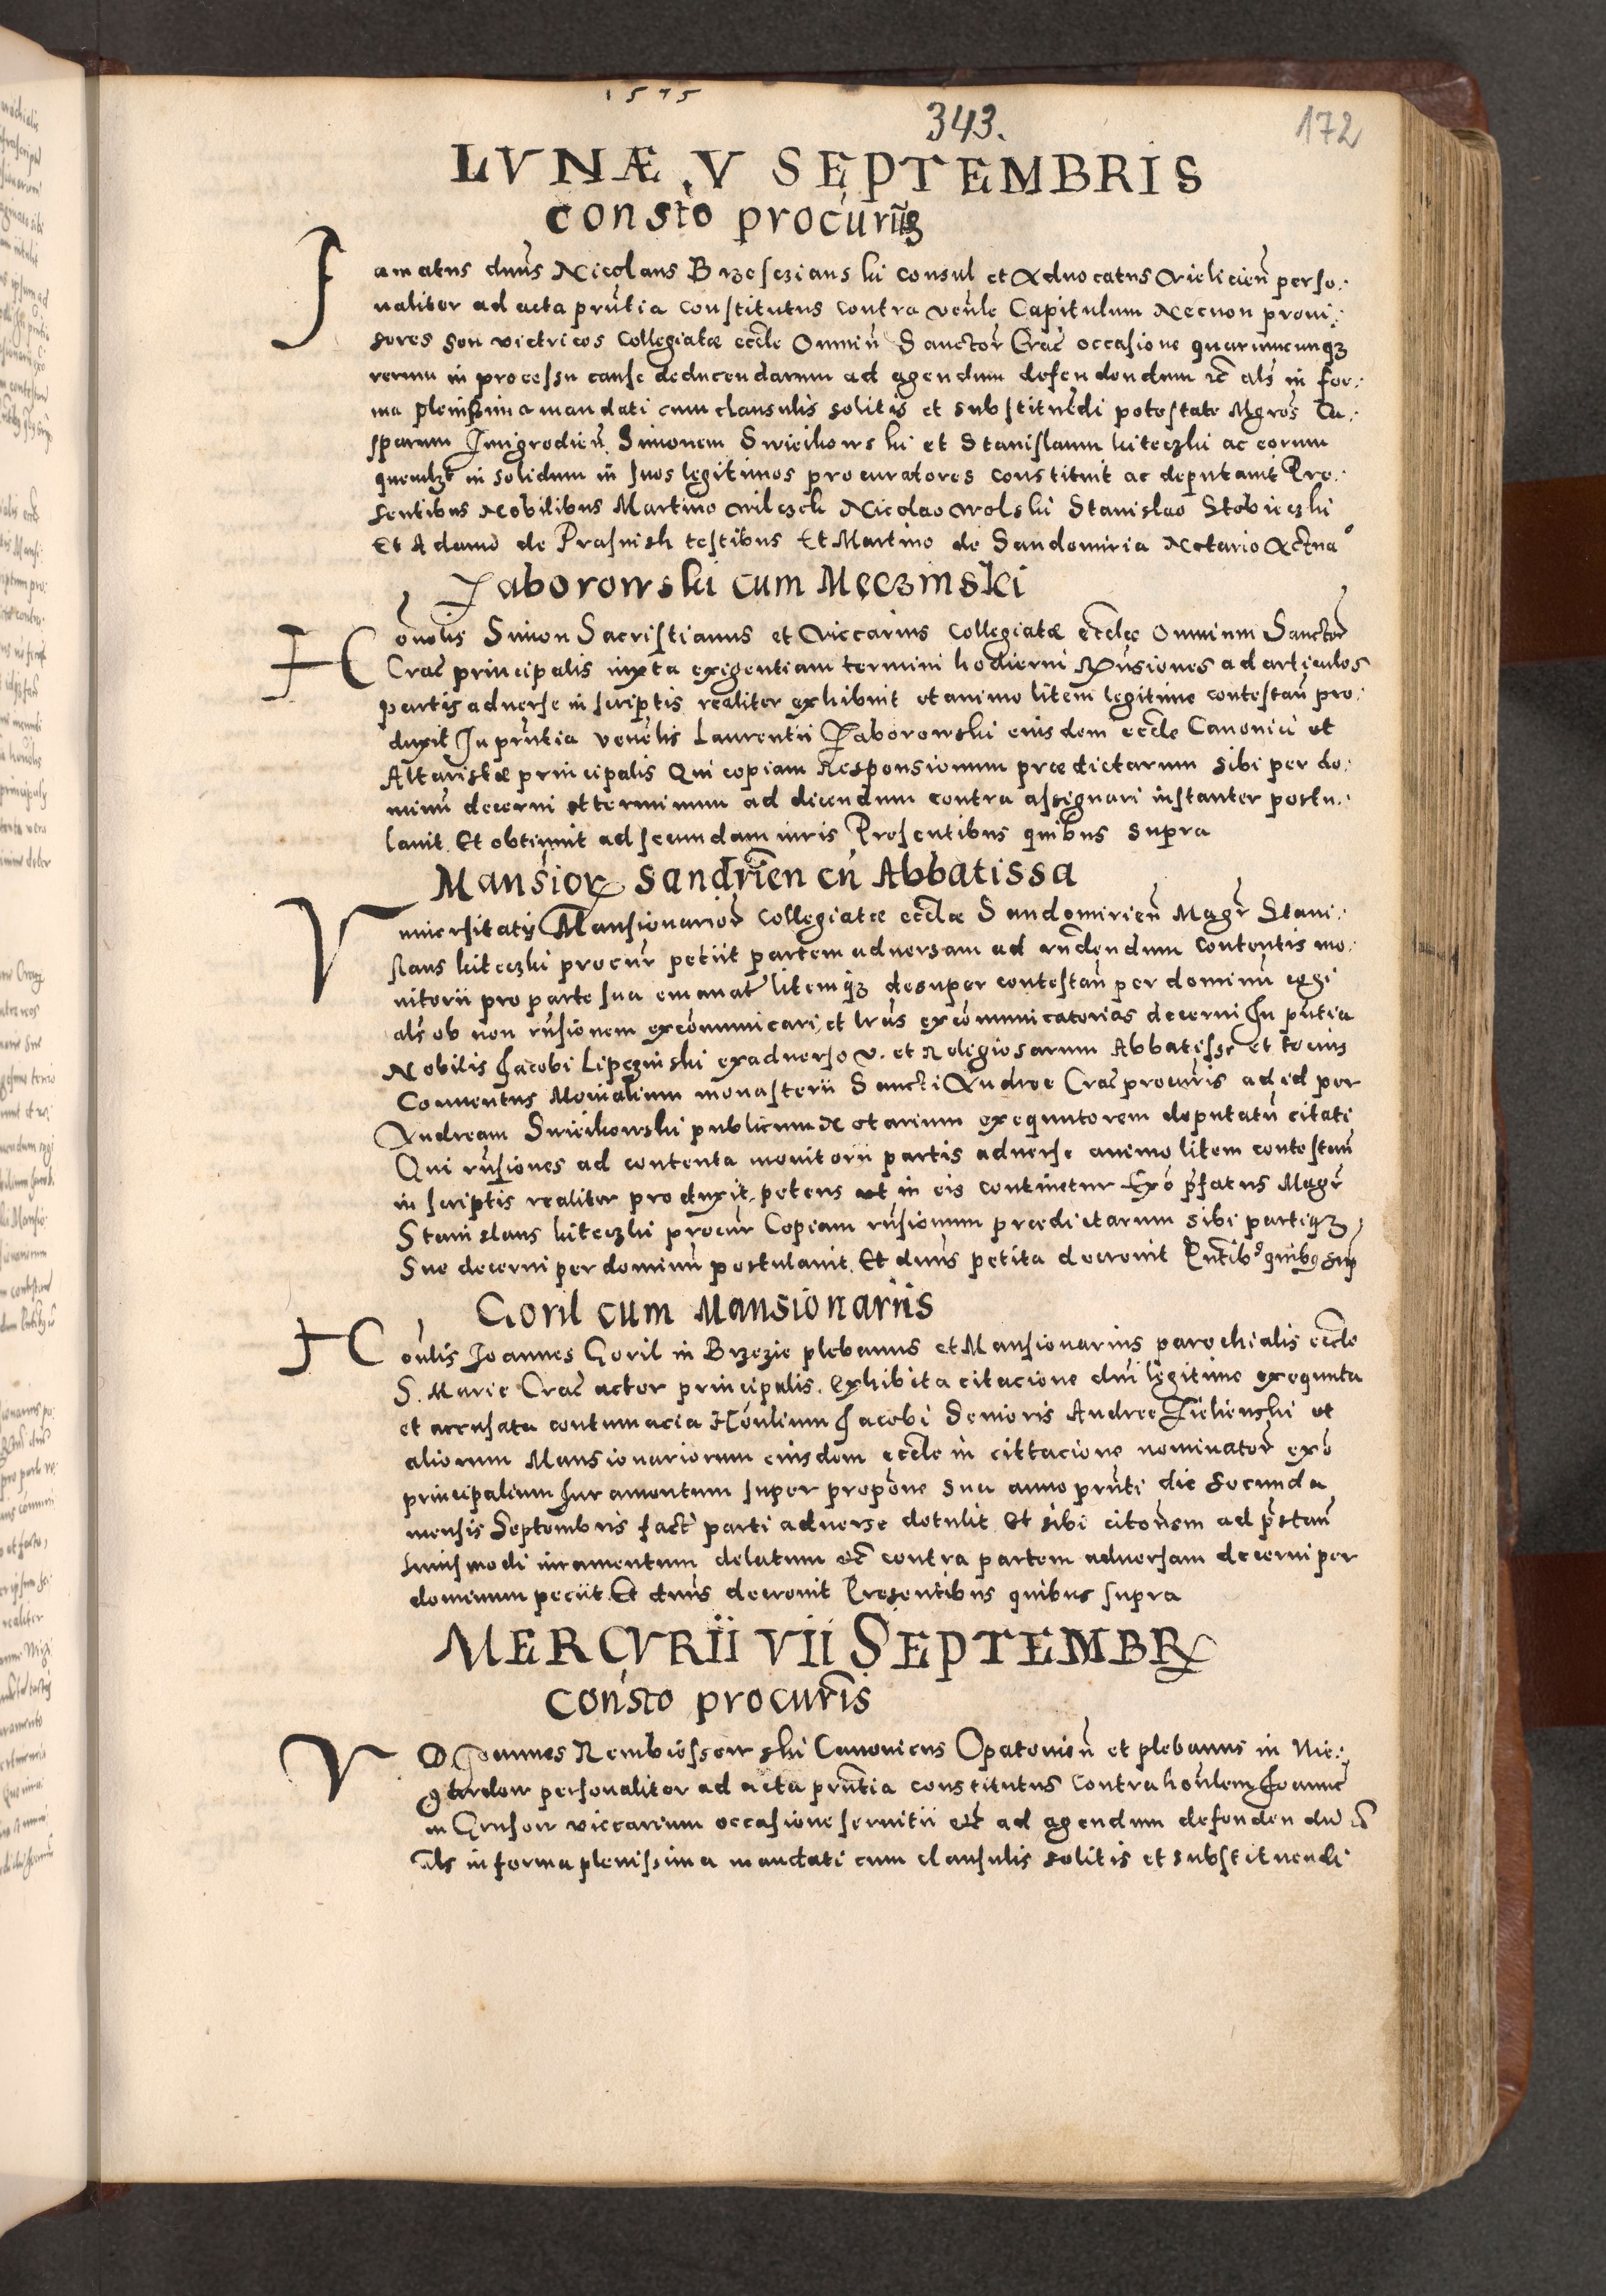 1575
343.
172
LVNÆ V SEPTEMBRIS
consto procuris
Famatus dnus Nicolaus Brzesczianski consul et Aduocatus Vielicien perso:
naliter ad acta pruntia constitutus contra venle Capitulum Necnon proui:
sores seu victricos Collegiatæ eccle Omniu Sanctor Crac occasione quarumcunqz
rerum in processu cause deducendarum ad agendum defendendum etc als in for:
ma plenissima mandati cum clausulis solitis et substituedi potestate Mgros Ca:
sparum Imigrodien Simonem Swieikowski et Stanislaum kiteczki ac eorum
quemlzt in solidum in suos legitimos procuratores constituit ac deputauit Pre:
sentibus Nobilibus Martino wilczek Nicolao wolski Stanislao Stobieczki
Et Adamo de Prasnish testibus Et Martino de Sandomiria Notario Actua
Zaborowski cum Męczinski
Honolis Simon Sacristianus et Viccarius Collegiatæ ecclęe Omnium Sanctor
Crac principalis iuxta exigentiam termini hodierni Rnsiones ad articulos
partis aduerse in scriptis realiter exhibuit et animo litem legitime contestan pro:
duxit In pruntia venelis Laurentii Zaborowski eiusdem eccle Canonici et
Altaristæ principalis Qui copiam Responsionum prædictarum sibi per do:
minu decerni et terminum ad dicendum contra assignari instanter postu:
lauit Et obtinuit ad secundam iuris Presentibus quibus supra
Mansior Sandrien cu Abbatissa
Vniuersitatis Mansionarior Collegiatæ ecclæ Sandomirien Magr Stani:
slaus kiteczki procur petiit partem aduersam ad rndendum contentis mo:
nitorii pro parte sua emanat litemqz desuper contestan per dominu cogi
als ob non rnsionem excomunicari, et lras excomunicatorias decerni In pntia
Nobilis Jacobi Lipczinski ex aduerso v. et Religiosarum Abbatisse et tocius
Conuentus Monialium monasterii Sancti Andree Crac procuris ad id per
Andream Swieikowski publicum Notarium exequutorem deputatu citati
Qui rnsiones ad contenta monitorii partis aduerse animo litem contestan
in scriptis realiter produxit petens ut in eis continetur Exo pfatus Magr
Stanislaus kiteczki procur Copiam rnsionum prædictarum sibi partiqz
Sue decerni per dominu postulauit. Et dnus petita decreuit Pntibs quibs sup
Goril cum Mansionariis
Honlis Joannes Goril in Brzezie plebanus et Mansionarius parochialis eccle
S. Marie Crac actor principalis. exhibita citacione dni legitime exequuta
et accusata contumacia Honlium Jacobi Senioris Andree Zielienski et
aliorum Mansionariorum eiusdem eccle in cittacione nominator exo
principalium Juramentum super propone sua anno prnti die Secunda
mensis Septembris fact parti aduerse detulit Et sibi citonem ad pstan
huiusmodi iuramentum delatum etc contra partem aduersam decerni per
dominum peciit. Et dnus decreuit Presentibus quibus supra
MERCVRII VII SEPTEMBR
consto procuris
V D Joannes Rembiessowski Canonicus Opatouien et plebanus in Nie:
gardow personaliter ad acta prntia constitutus Contra honlem Joanne
in Grusow viccarium occasione seruitii etc ad agendum defendendu etc
als in forma plenissima mandati cum clausulis solitis et substituendi